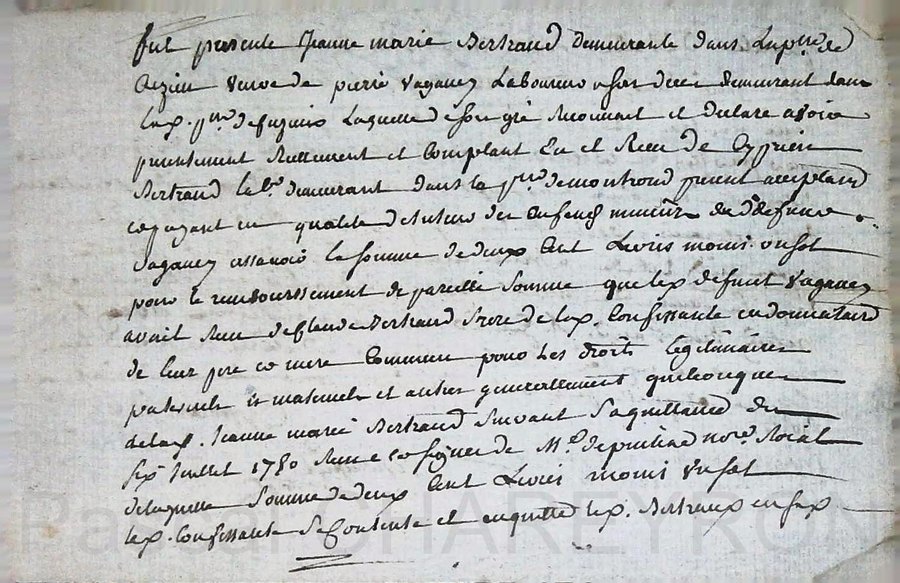 fut presente Jeanne marie Bertrand demeurante dans la prse de
veuve de pierre vaganey Laboureur demeurant dans
Laquelle de son gré Reconnait et declare avoir
presentement Reellement et Comptant Eu et Receu de Cyprien
Bertrand lab.r demeurant dans la prse de montroud present acceptant
et payant en qualité de tuteur des Enfens mineurs dud. defunt
vaganey la somme de deux Cent Livres moins un sol
pour le remboursement de pareille somme que lex defunt vaganey
avait Reçu de Claude Bertrand frere de lex. Confessante en donnataire
de leur pere et mere Commun pour Les droits Legitimaires
paternels et maternels et autres generallement quelconques
delax. Jeanne marie Bertrand suivant sa quittance du
six Juillet 1780 Reçue et signée de Me. depouilne nore. Roial
delaquelle somme de deux Cent Livres moins un sol
lex. Confessante se Contente et en quitte lex. Bertrand
Pascal CHAREYRON